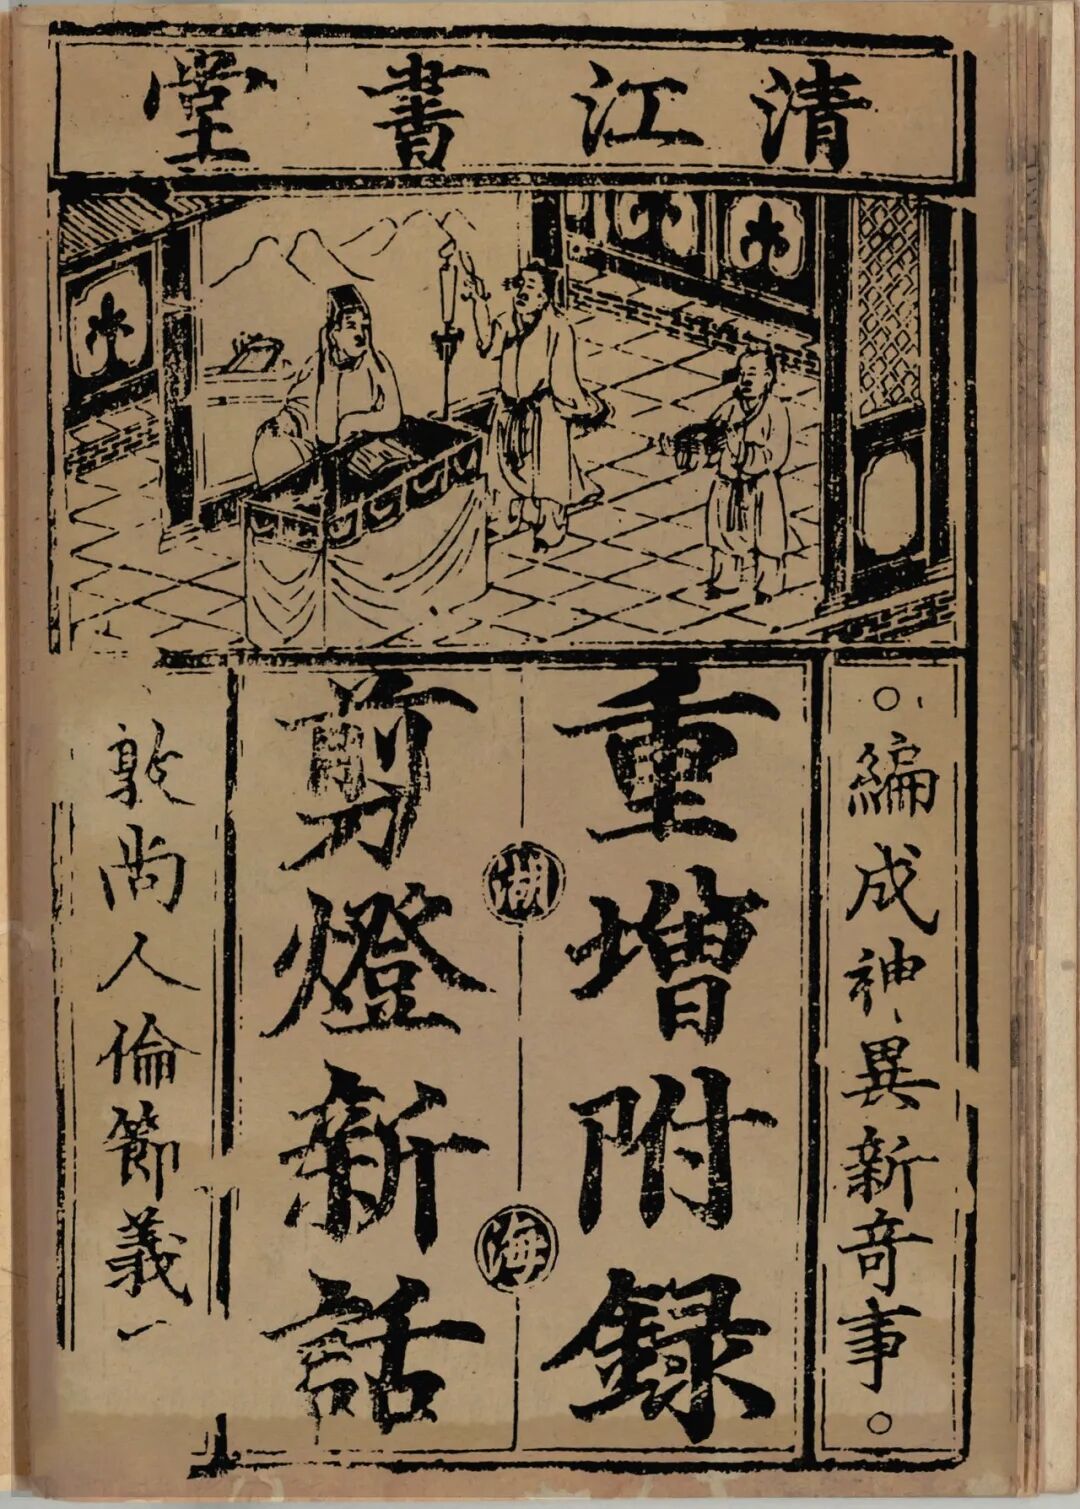 清江書堂
編成神異新竒事
重増附録
湖海
剪燈新話
敦尚人倫節義